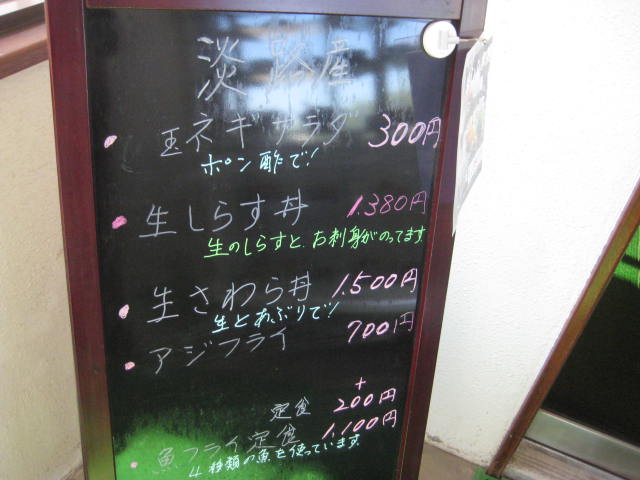 淡路産
玉ネギサラダ 300円
ポン酢で!
生しらす丼 1.380円
生のしらすと、お刺身がのってます
生さわら丼 1.500円
生とあぶりで!
アジフライ 700円
定食 +200円
魚フライ定食 1.100円
4種類の魚を使っています.